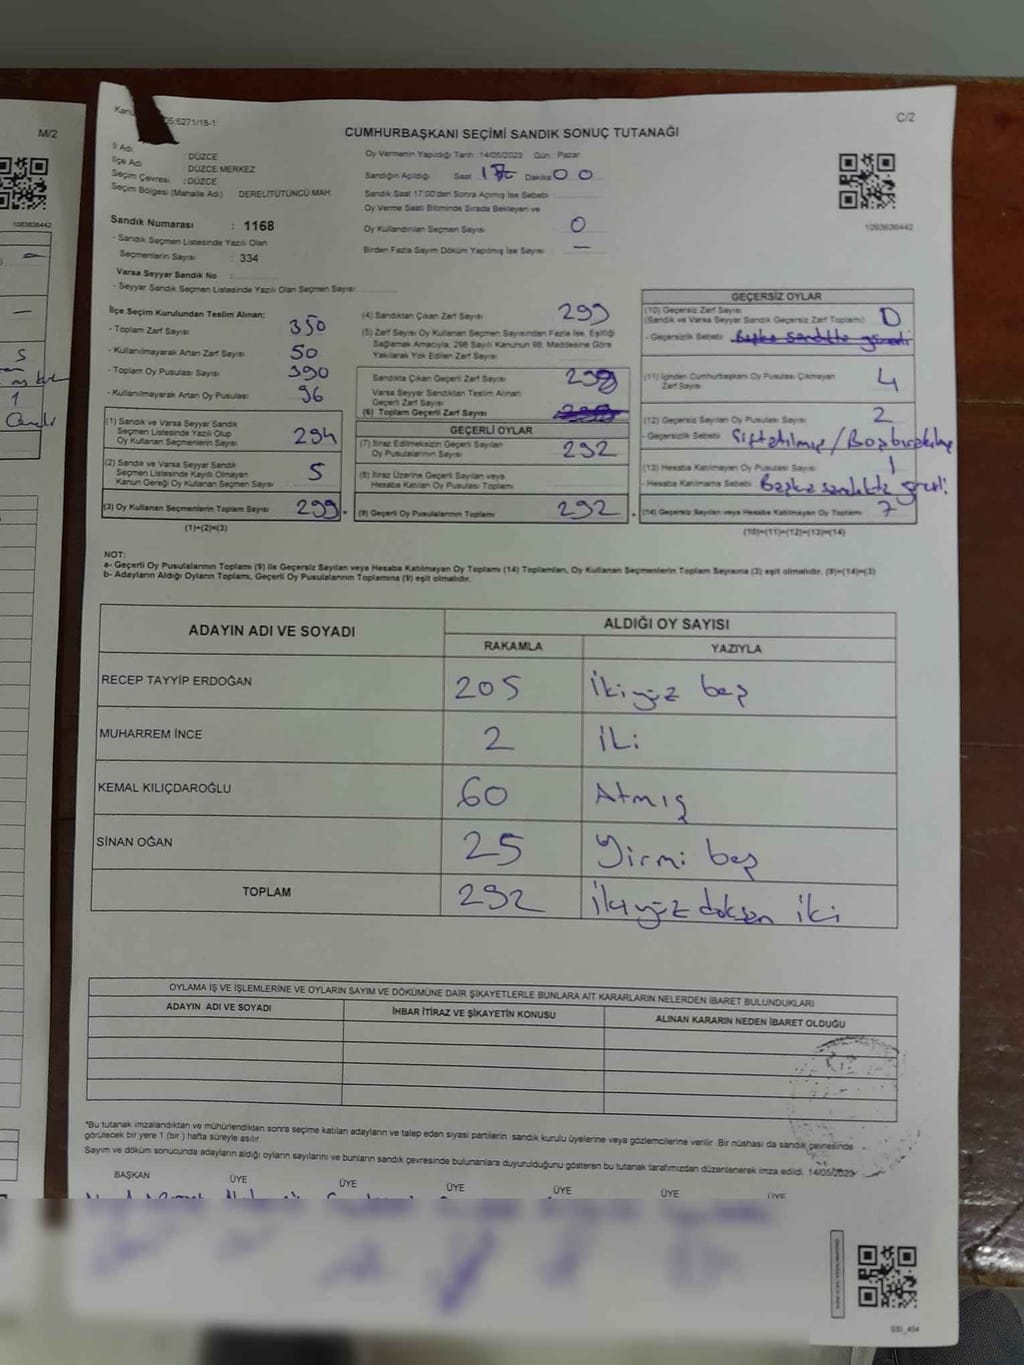 M/2
1093636442
C/2
CUMHURBAŞKANI SEÇİMİ SANDIK SONUÇ TUTANAĞI
İl Adı : DÜZCE
İlçe Adı : DÜZCE MERKEZ
Seçim Çevresi : DÜZCE
Seçim Bölgesi (Mahalle Adı) DERELİTÜTÜNCÜ MAH.
Oy Vermenin Yapıldığı Tarih :14/05/2023 Gün : Pazar
Sandığın Açıldığı Saat Dakika 00
Sandık Saat 17:00'den Sonra Açımış İse Sebebi
Oy Verme Saati Bitiminde Sırada Bekleyen ve
Oy Kullandırılan Seçmen Sayısı 0
Birden Fazla Sayım Döküm Yapılmış İse Sayısı —
1093636442
Sandık Numarası : 1168
- Sandık Seçmen Listesinde Yazılı Olan
Seçmenlerin Sayısı : 334
Varsa Seyyar Sandık No :
- Seyyar Sandık Seçmen Listesinde Yazılı Olan Seçmen Sayısı
İlçe Seçim Kurulundan Teslim Alınan;
- Toplam Zarf Sayısı 350
- Kullanılmayarak Artan Zarf Sayısı 50
- Toplam Oy Pusulası Sayısı 390
- Kullanılmayarak Artan Oy Pusulası 96
(1) Sandık ve Varsa Seyyar Sandık
Seçmen Listesinde Yazılı Olup
Oy Kullanan Seçmenlerin Sayısı 294
(2) Sandık ve Varsa Seyyar Sandık
Seçmen Listesinde Kayıtlı Olmayan
Kanun Gereği Oy Kullanan Seçmen Sayısı 5
(3) Oy Kullanan Seçmenlerin Toplam Sayısı 299
(1)+(2)=(3)
(4) Sandıktan Çıkan Zarf Sayısı 299
(5) Zarf Sayısı Oy Kullanan Seçmen Sayısından Fazla İse, Eşitliği
Sağlamak Amacıyla, 298 Sayılı Kanunun 98. Maddesine Göre
Yakılarak Yok Edilen Zarf Sayısı
Sandıkta Çıkan Geçerli Zarf Sayısı
Varsa Seyyar Sandıktan Teslim Alınan
Geçerli Zarf Sayısı
(6) Toplam Geçerli Zarf Sayısı
GEÇERLİ OYLAR
(7) İtiraz Edilmeksizin Geçerli Sayılan
Oy Pusulalarının Sayısı 292
(8) İtiraz Üzerine Geçerli Sayılan veya
Hesaba Katılan Oy Pusulası Toplamı
(9) Geçerli Oy Pusulalarının Toplamı 292
GEÇERSİZ OYLAR
(10) Geçersiz Zarf Sayısı
(Sandık ve Varsa Seyyar Sandık Geçersiz Zarf Toplamı) 0
- Geçersizlik Sebebi Başka sandıkta görevli
(11) İçinden Cumhurbaşkanı Oy Pusulası Çıkmayan
Zarf Sayısı 4
(12) Geçersiz Sayılan Oy Pusulası Sayısı 2
- Geçersizlik Sebebi
(13) Hesaba Katılmayan Oy Pusulası Sayısı 1
- Hesaba Katılmama Sebebi Başka sandıkta görevli
(14) Geçersiz Sayılan veya Hesaba Katılmayan Oy Toplamı 7
(10)+(11)+(12)+(13)=(14)
NOT:
a- Geçerli Oy Pusulalarının Toplamı (9) ile Geçersiz Sayılan veya Hesaba Katılmayan Oy Toplamı (14) Toplamları, Oy Kullanan Seçmenlerin Toplam Sayısına (3) eşit olmalıdır. (9)+(14)=(3)
b- Adayların Aldığı Oyların Toplamı, Geçerli Oy Pusulalarının Toplamına (9) eşit olmalıdır.
ADAYIN ADI VE SOYADI ALDIĞI OY SAYISI
RAKAMLA YAZIYLA
RECEP TAYYİP ERDOĞAN 205 İkiyüz beş
MUHARREM İNCE 2 İki
KEMAL KILIÇDAROĞLU 60 Atmış
SİNAN OĞAN 25 Yirmi beş
TOPLAM 292 İkiyüz doksan iki
OYLAMA İŞ VE İŞLEMLERİNE VE OYLARIN SAYIM VE DÖKÜMÜNE DAİR ŞİKAYETLERLE BUNLARA AİT KARARLARIN NELERDEN İBARET BULUNDUKLARI
ADAYIN ADI VE SOYADI İHBAR İTİRAZ VE ŞİKAYETİN KONUSU ALINAN KARARIN NEDEN İBARET OLDUĞU
*Bu tutanak imzalandıktan ve mühürlendikten sonra seçime katılan adayların ve talep eden siyasi partilerin sandık kurulu üyelerine veya gözlemcilerine verilir. Bir nüshası da sandık çevresinde
görülecek bir yere 1 (bir) hafta süreyle asılır.
Sayım ve döküm sonucunda adayların aldığı oyların sayılarını ve bunların sandık çevresinde bulunanlara duyurulduğunu gösteren bu tutanak tarafımızdan düzenlenerek imza edildi. 14/05/2023
BAŞKAN ÜYE ÜYE ÜYE ÜYE ÜYE ÜYE